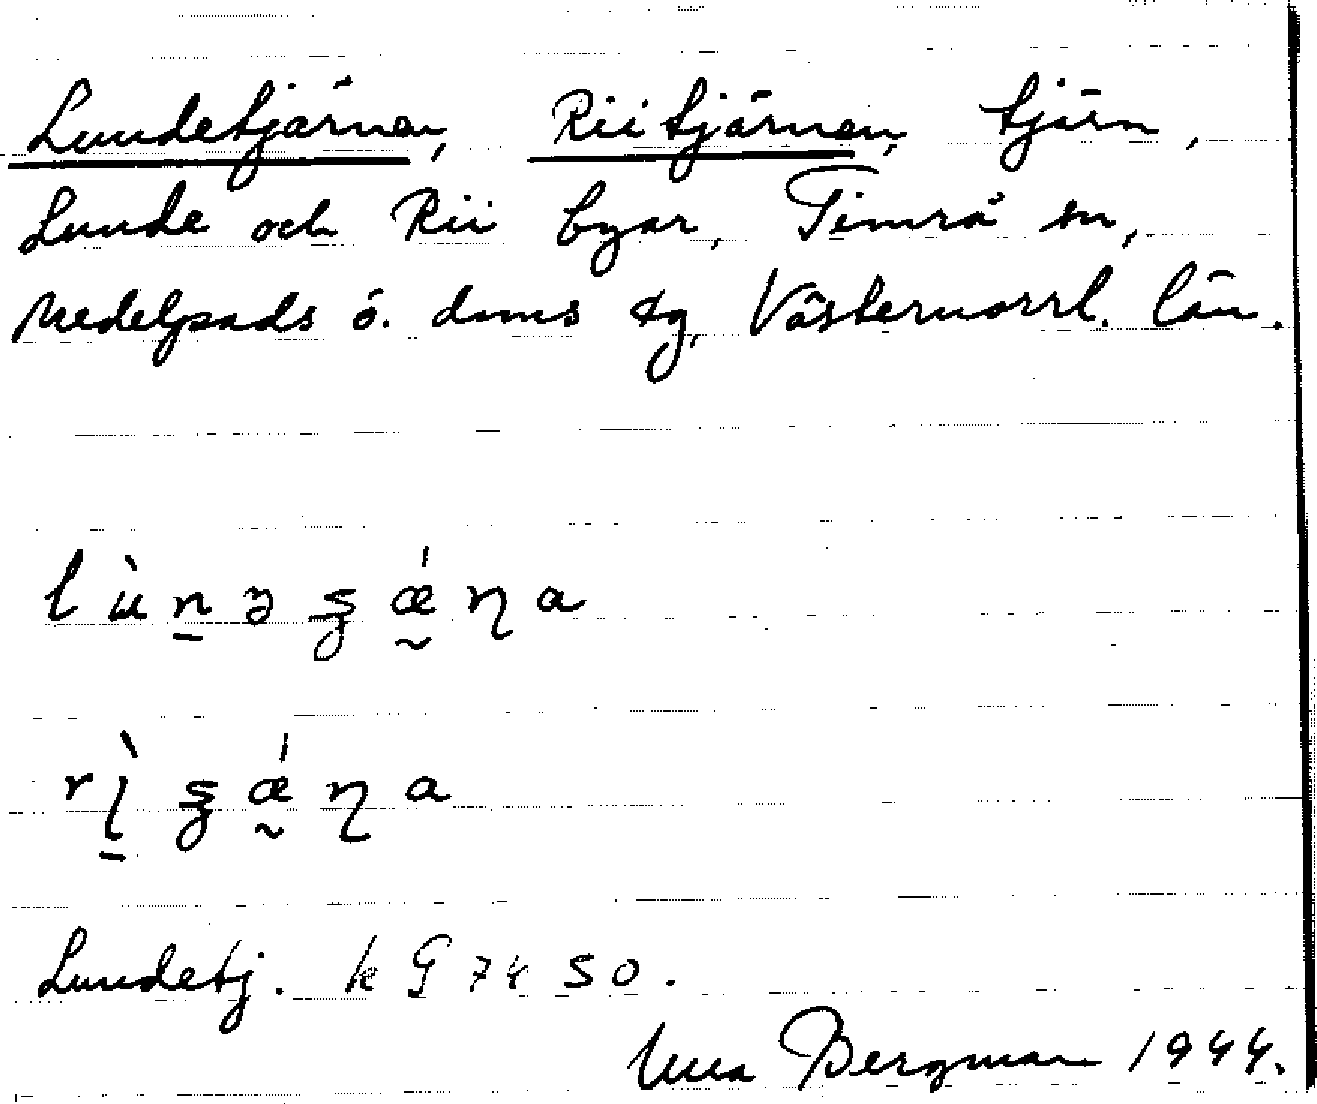 Lundetjärnen, Riitjärnen, tjärn,
Lunde och Rii byar, Timrå sn,
Medelpads ö. doms dg, Västernorrl. län.
lùnəʂǽɳa
rìʂǽɳa
Lundetj. k G 74 50.
Bergman 1944.